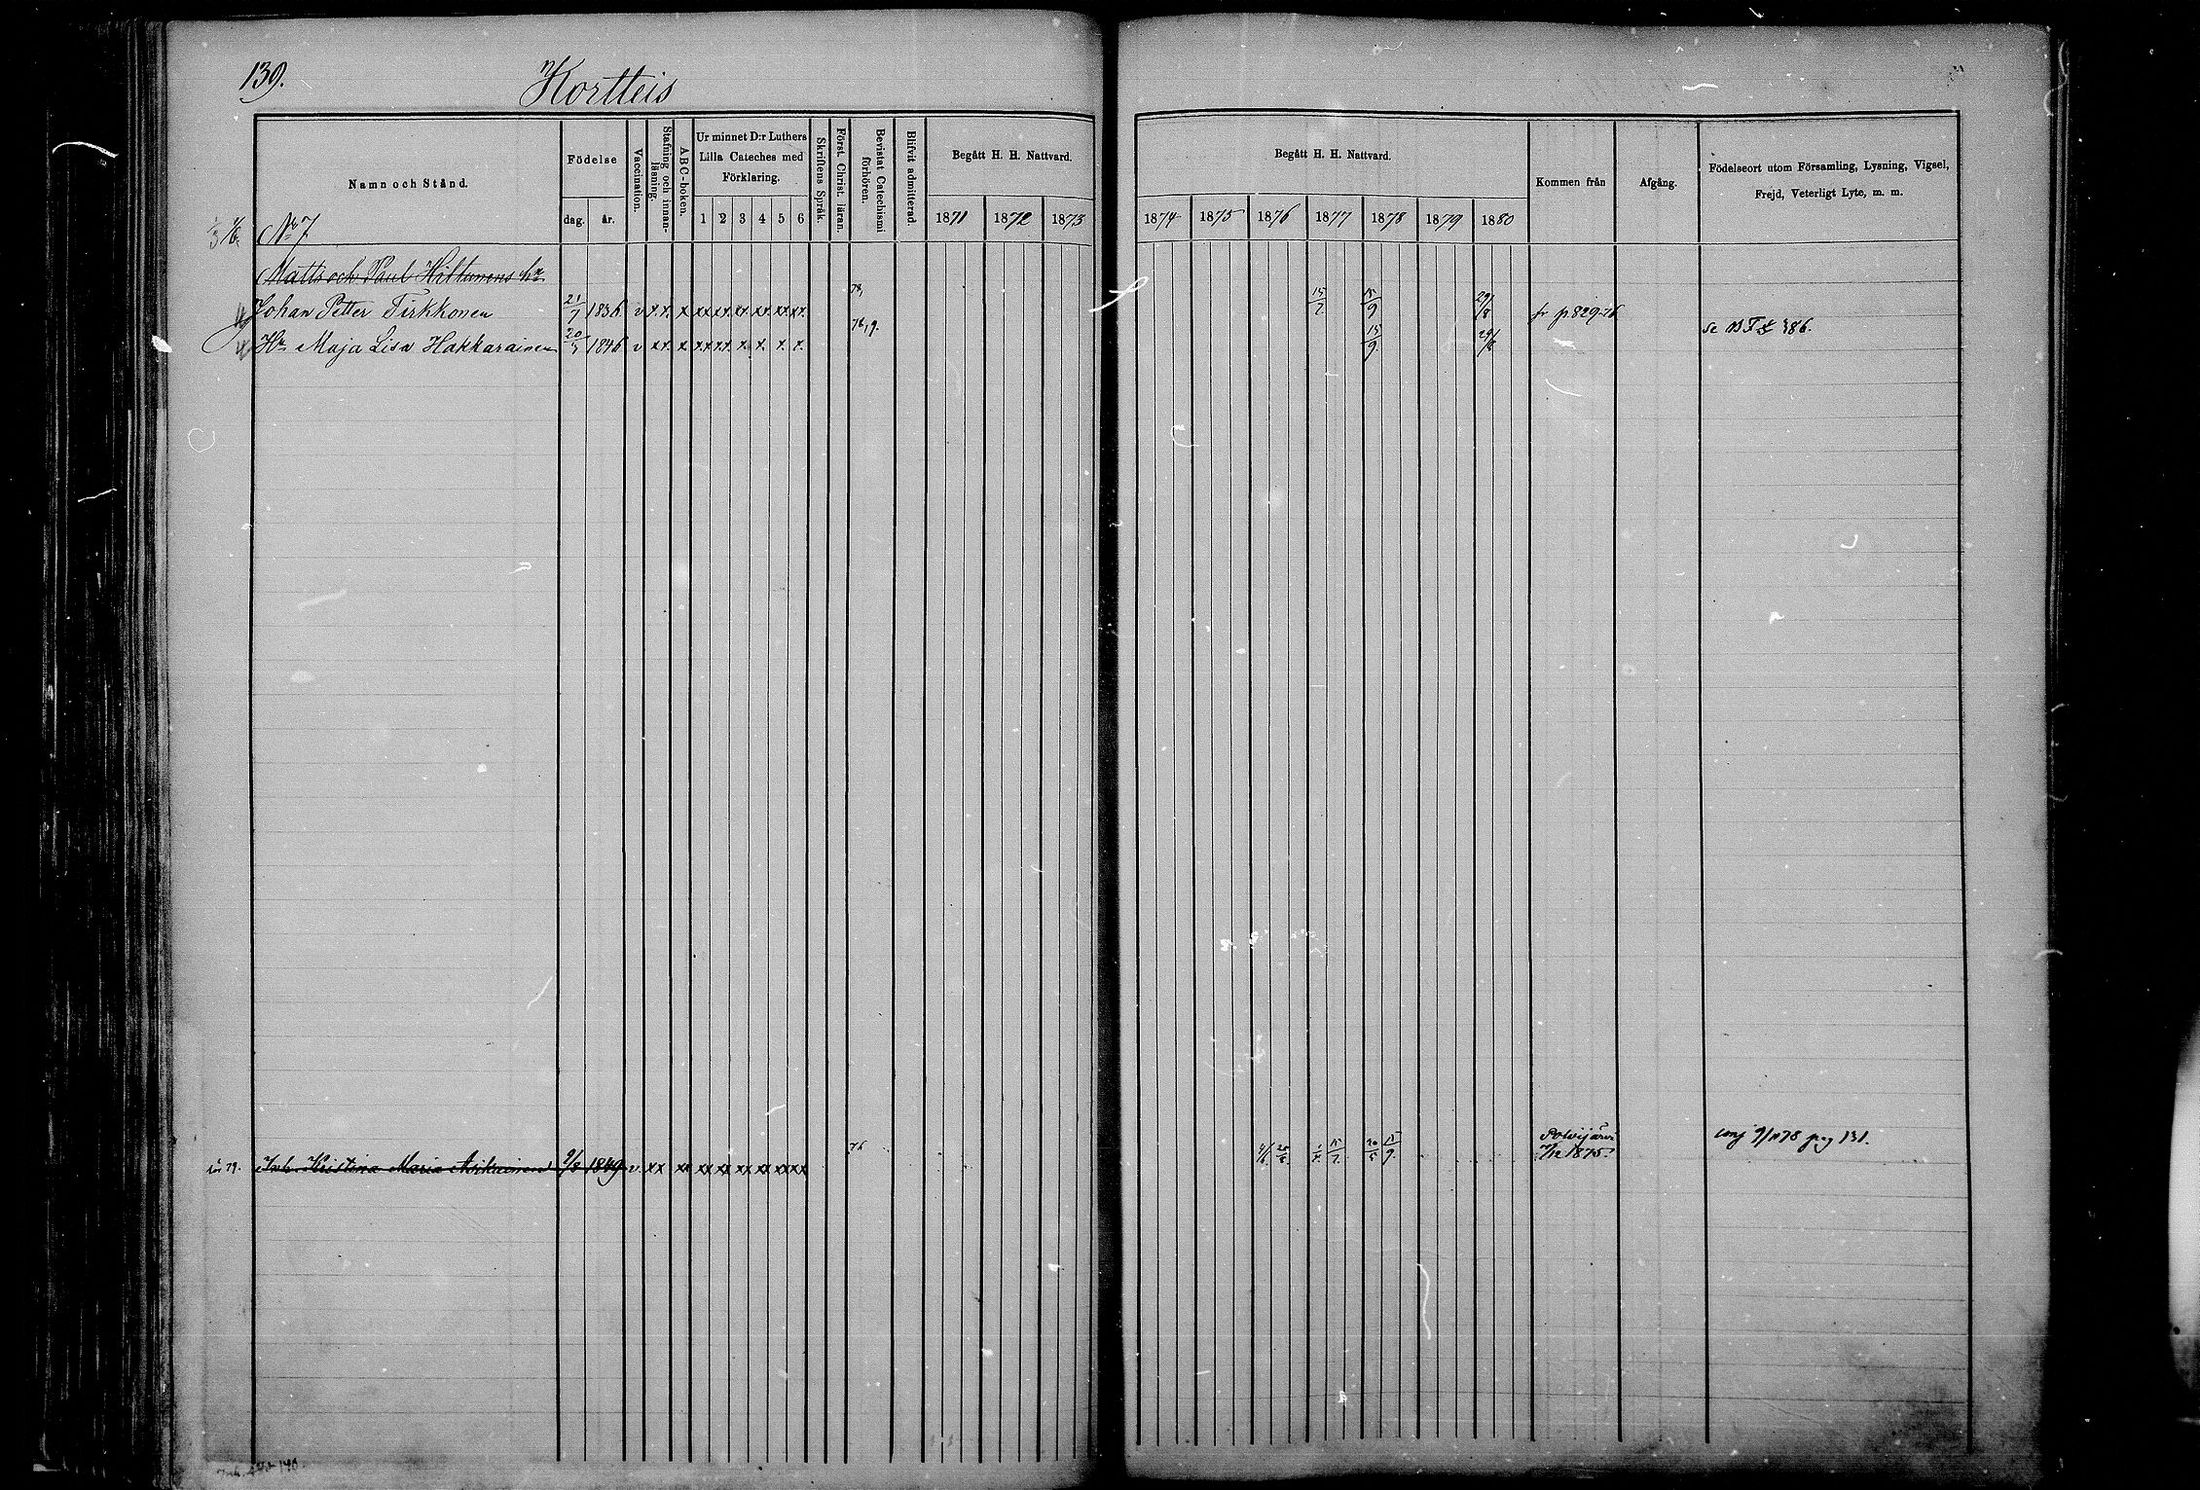 139.
Kortteis
Namn och Stånd.
Födelse
dag.
år.
Vaccination.
Stafning och innanläsning.
ABC-boken.
Ur minnet D:r Luthers
Lilla Cateches med
Förklaring.
1 2 3 4 5 6
Skriftens Språk.
Först. Christ. läran.
Bevistat Catechismi förhören.
Blifvit admitterad.
Begått H. H. Nattvard.
1871 1872 1873
Begått H. H. Nattvard.
1874 1875 1876 1877 1878 1879 1880
Kommen från
Afgång.
Födelseort utom Församling, Lysning, Vigsel,
Frejd, Veterligt Lyte, m. m.
No 7
Matts och Paul Hiltunens hn
Johan Petter Tirkkonen 21/7 1836 v x x x xx xx xx xx xx xx 78, 15/7 15/9 29/8 fr p 829-76
Hu Maja Lisa Hakkarainen 20/3 1846 v x x x xx xx x x x x 76,9. 15/9 29/8 se 386.
Inh. Kristina Maria Asikainen 9/3 1849 v xx xx xx xx xx xx xx xx 76 15/7 15/9 Polvijärvi
1875. 78 pag 131.